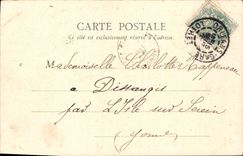 CARTE POSTALE
Ce côté est exclusivement réservé à l'adresse
Mademoiselle Charlotte Happeneau
à Dissangis
par L'Isle sur Serein
Yonne